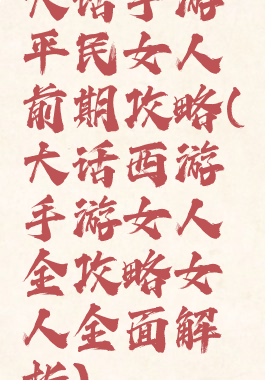 大话手游
平民女人
前期攻略(
大话西游
手游女人
全攻略女
人全面解
析)